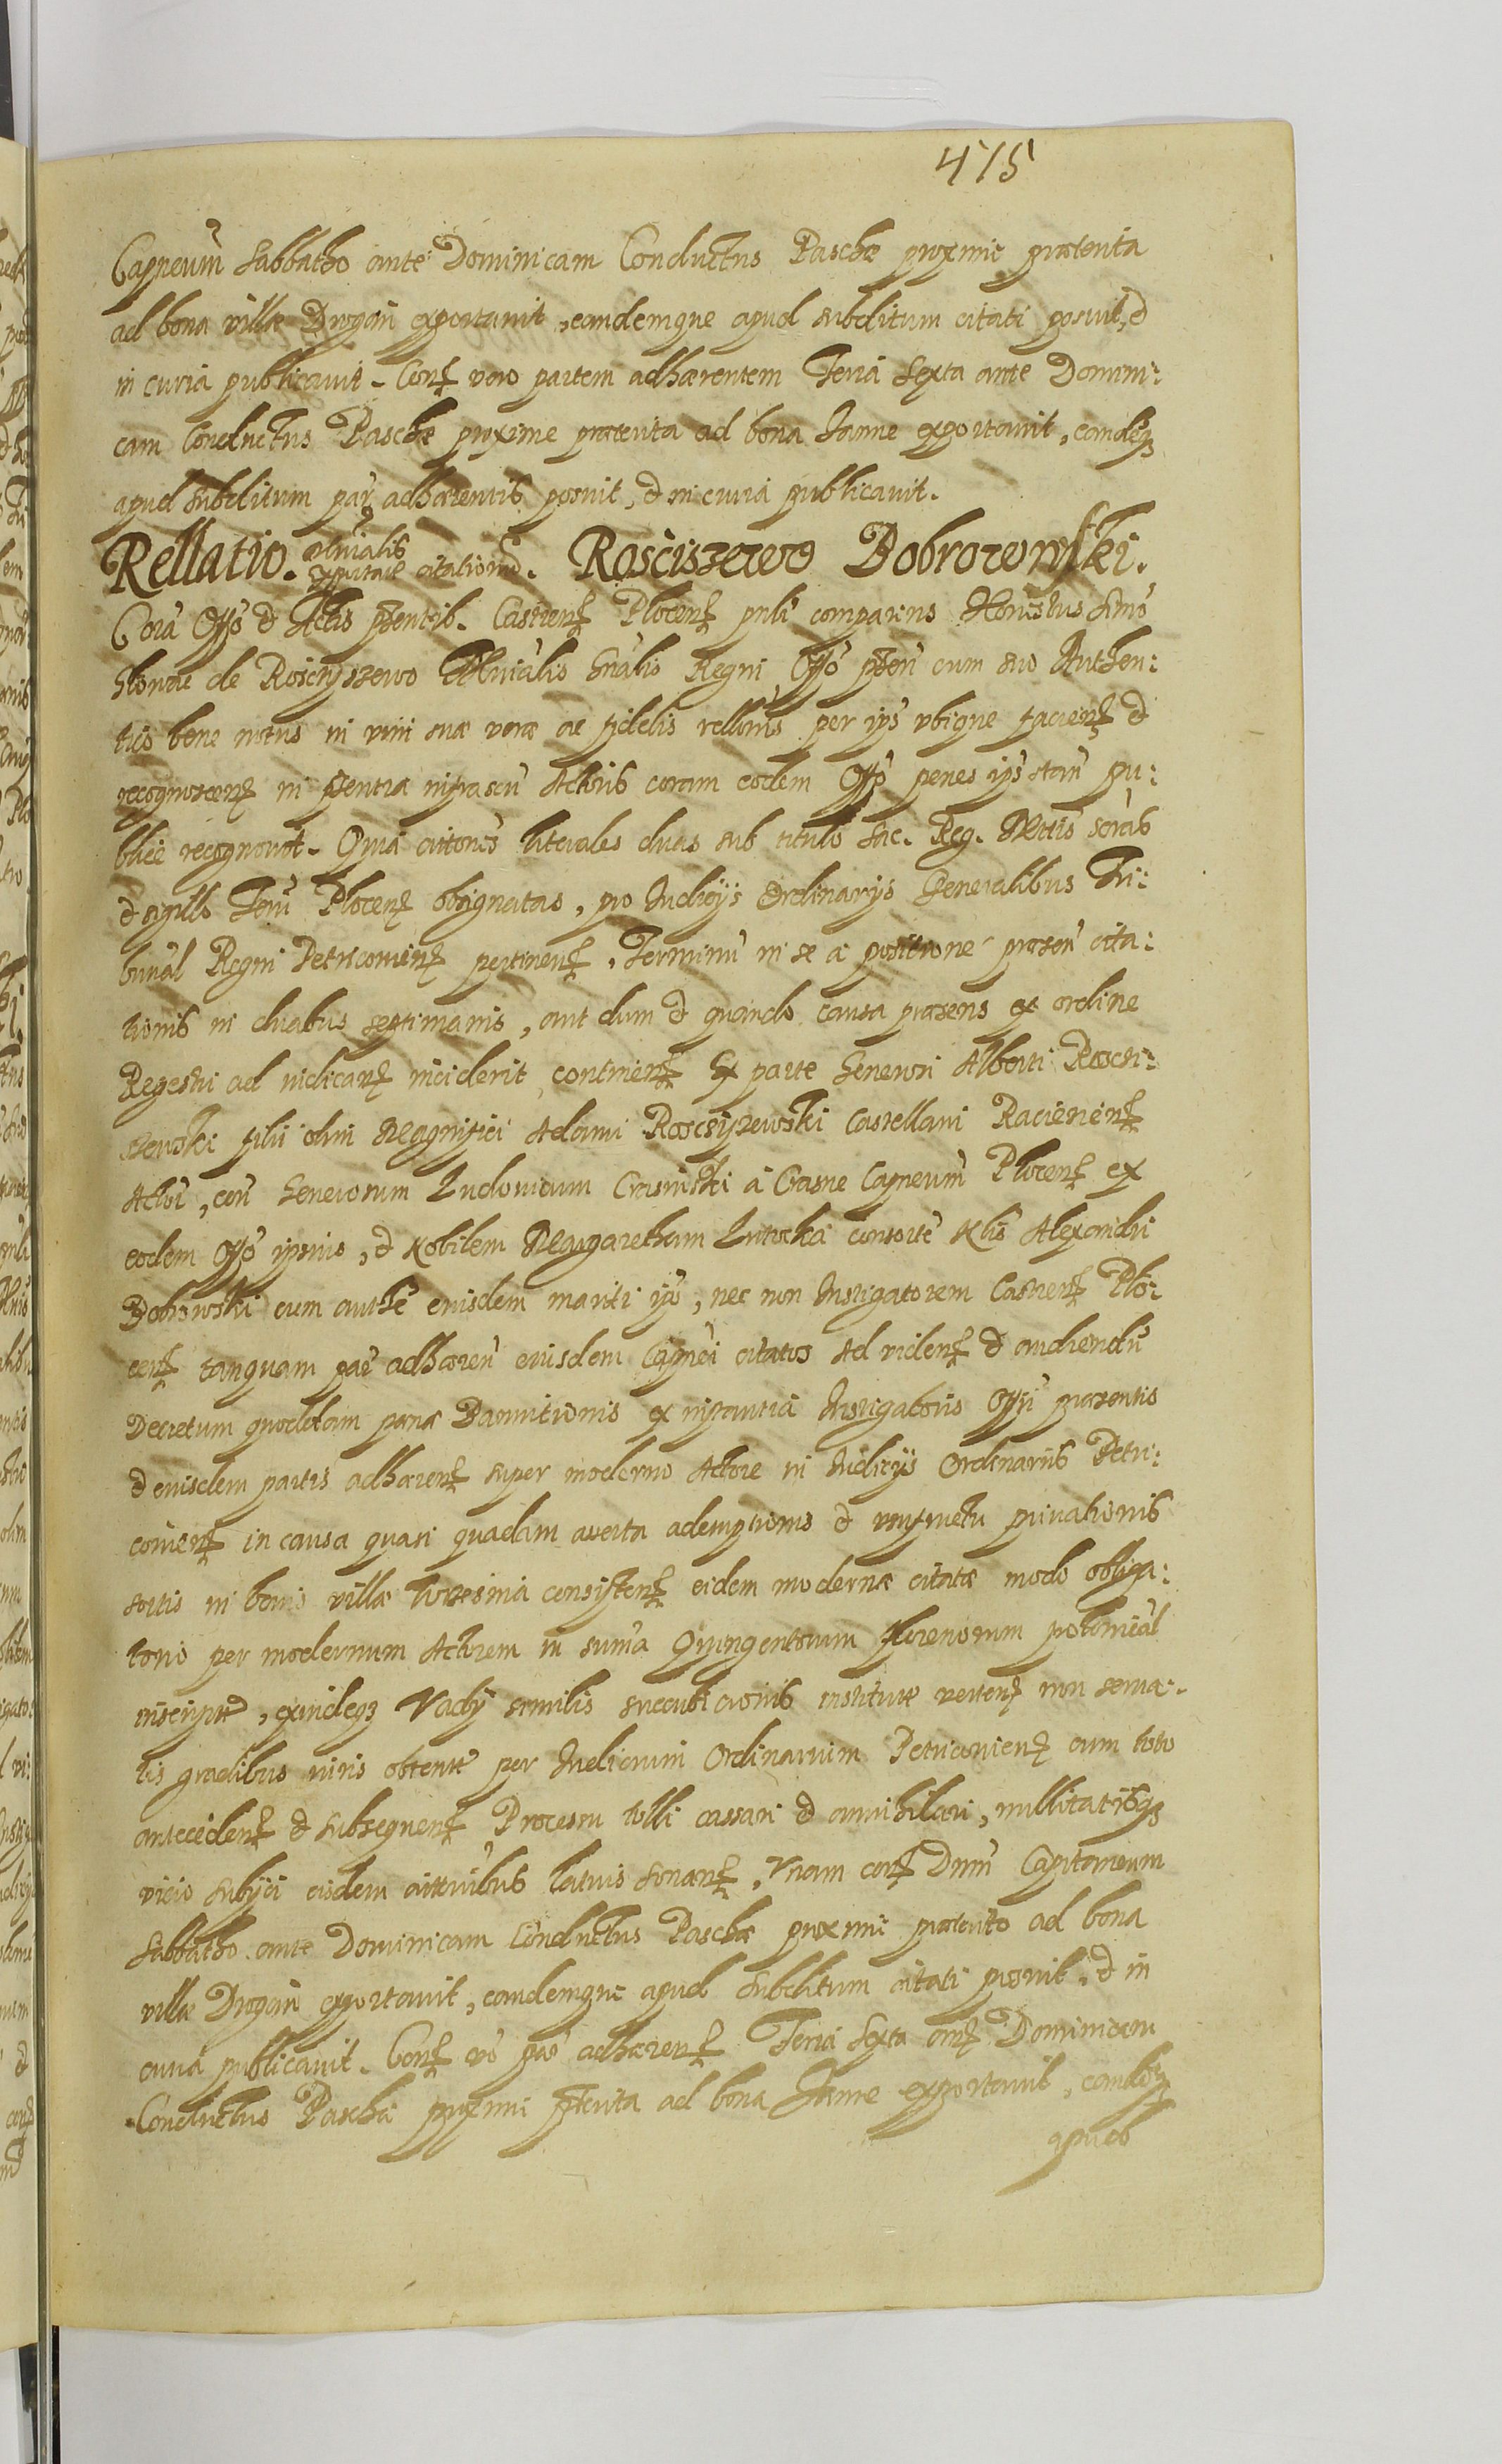 475
Capneum Sabbatho ante Dominicam Conductus Paschæ proxime præterita
ad bona villæ Drogin exportavit, eandemque apud subditum citati posuit, et
in curia publicavit. Contra vero partem adhærentem Feria Sexta ante Domini:
cam Conductus Paschæ proxime præterita ad bona Janne exportavit, eandemq3
apud subditum par adhærentis posuit, et in curia publicavit.
Rellatio. Mnrialis exportatæ citationis. Rościszewo Dobrorowski.
Corã Offo et Actis pñtib. Castrens Plocens pñli comparens Honestus Simo
de Rosciszewo Mnrialis Gnalis Regni Offo pñsen cum suo Authen:
tico bene notus in vim suæ veræ ac fidelis rellonis per ips ubique faciens et
recognoscens in pñsentia infrascri Actoris coram eodem Offo penes ips stan pu:
blice recognovit. Quia cittones literales duas sub titulo Sac. Reg. Mttis scrãs
et sigillo Terr Plocens obsignatas, pro Judicijs Ordinarijs Generalibus Tri:
bunal Regni Petricoviens pertinens, Terminũ in se a positione præsen cita:
tionis in duabus septimanis, aut dum et quando causa præsens ex ordine
Regestri ad iudicans inciderit continens Ex parte Generosi Alberti Rosci:
szewski filii olim Magnifici Adami Rosciszewski Castellani Raciesiens
Actor, con Generosum Ludovicum Crasinski a Crasne Capneum Plocens ex
eodem Offo ipsius, et Nobilem Margaretham consorte Nlis Alexandri
Dobrowski cum authe eiusdem mariti ips, nec non Instigatorem Castrens Plo:
cens tanquam par adhæren eiusdem Capnei citatos Ad videns et audiendũ
Decretum quoddam pænæ Bannitionis ex instantia Instigatoris Offi præsentis
et eiusdem partis adhærens super moderno Actore in Judicijs Ordinariis Petri:
coviens in causa quasi quadam averta ademptionis et privationis
sortis in bonis villæ consistens eidem modernæ citatæ modo obliga:
torio per modernum Actorem in suma Quingentorum florenorum polonical
inscriptæ, exindeq3 Vadij similis succubitionis institutæ vertens non serva:
tis gradibus iuris obtentũ per Iudicium Ordinarium Petricoviens cum toto
antecedens et subsequens Processu tolli cassari et annihilari, nullitatibq3
vicio subijci eisdem cittonibus latius sonans. Vnam cons Dnũm Capitaneum
Sabbatho ante Dominicam Conductus Paschæ proxime præterito ad bona
villæ Drogin exportavit, eandemque apud subditum citati posuit. et in
curia publicavit. Cons vero par adhærens Feria Sexta ans Dominicam
Conductus Paschæ proxime pterita ad bona Janne exportavit, eandeq3
apud